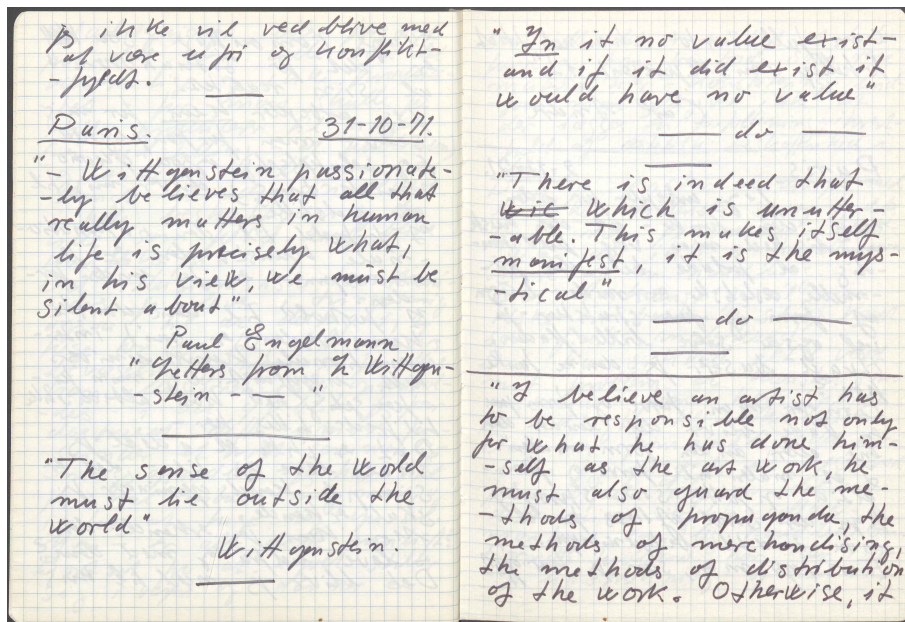 ikke vil ved blive med
at være og konflikt-
-fyldt.
Paris. 31-10-71.
"- Wittgenstein passionate-
-ly believes that all that
really matters in human
life is precisely what,
in his view, we must be
silent about"
Paul Engelmann
"Letters from L Wittgen-
-stein - — "
"The sense of the world
must lie outside the
world"
Wittgenstein.
"In it no value exist-
and if it did exist it
would have no value"
— do —
"There is indeed that
which is unutter-
-able. This makes itself
manifest, it is the mys-
-tical"
— do —
"I believe an artist has
to be responsible not only
for what he has done him-
-self as the art work, he
must also guard the me-
-thods of propaganda, the
methods of merchandising,
the methods of distribution
of the work. Otherwise, it